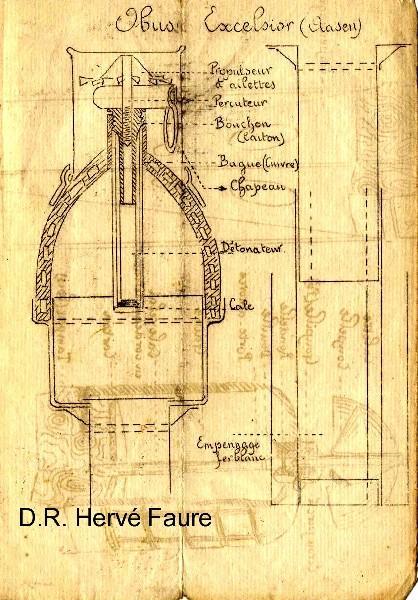 Obus Excelsior (Aasen)
Propulseur
à ailettes
Percuteur
Bouchon
(Laiton)
Bague (Cuivre)
Chapeau
Détonateur
Cale
Empennage
fer blanc
D.R. Hervé Faure